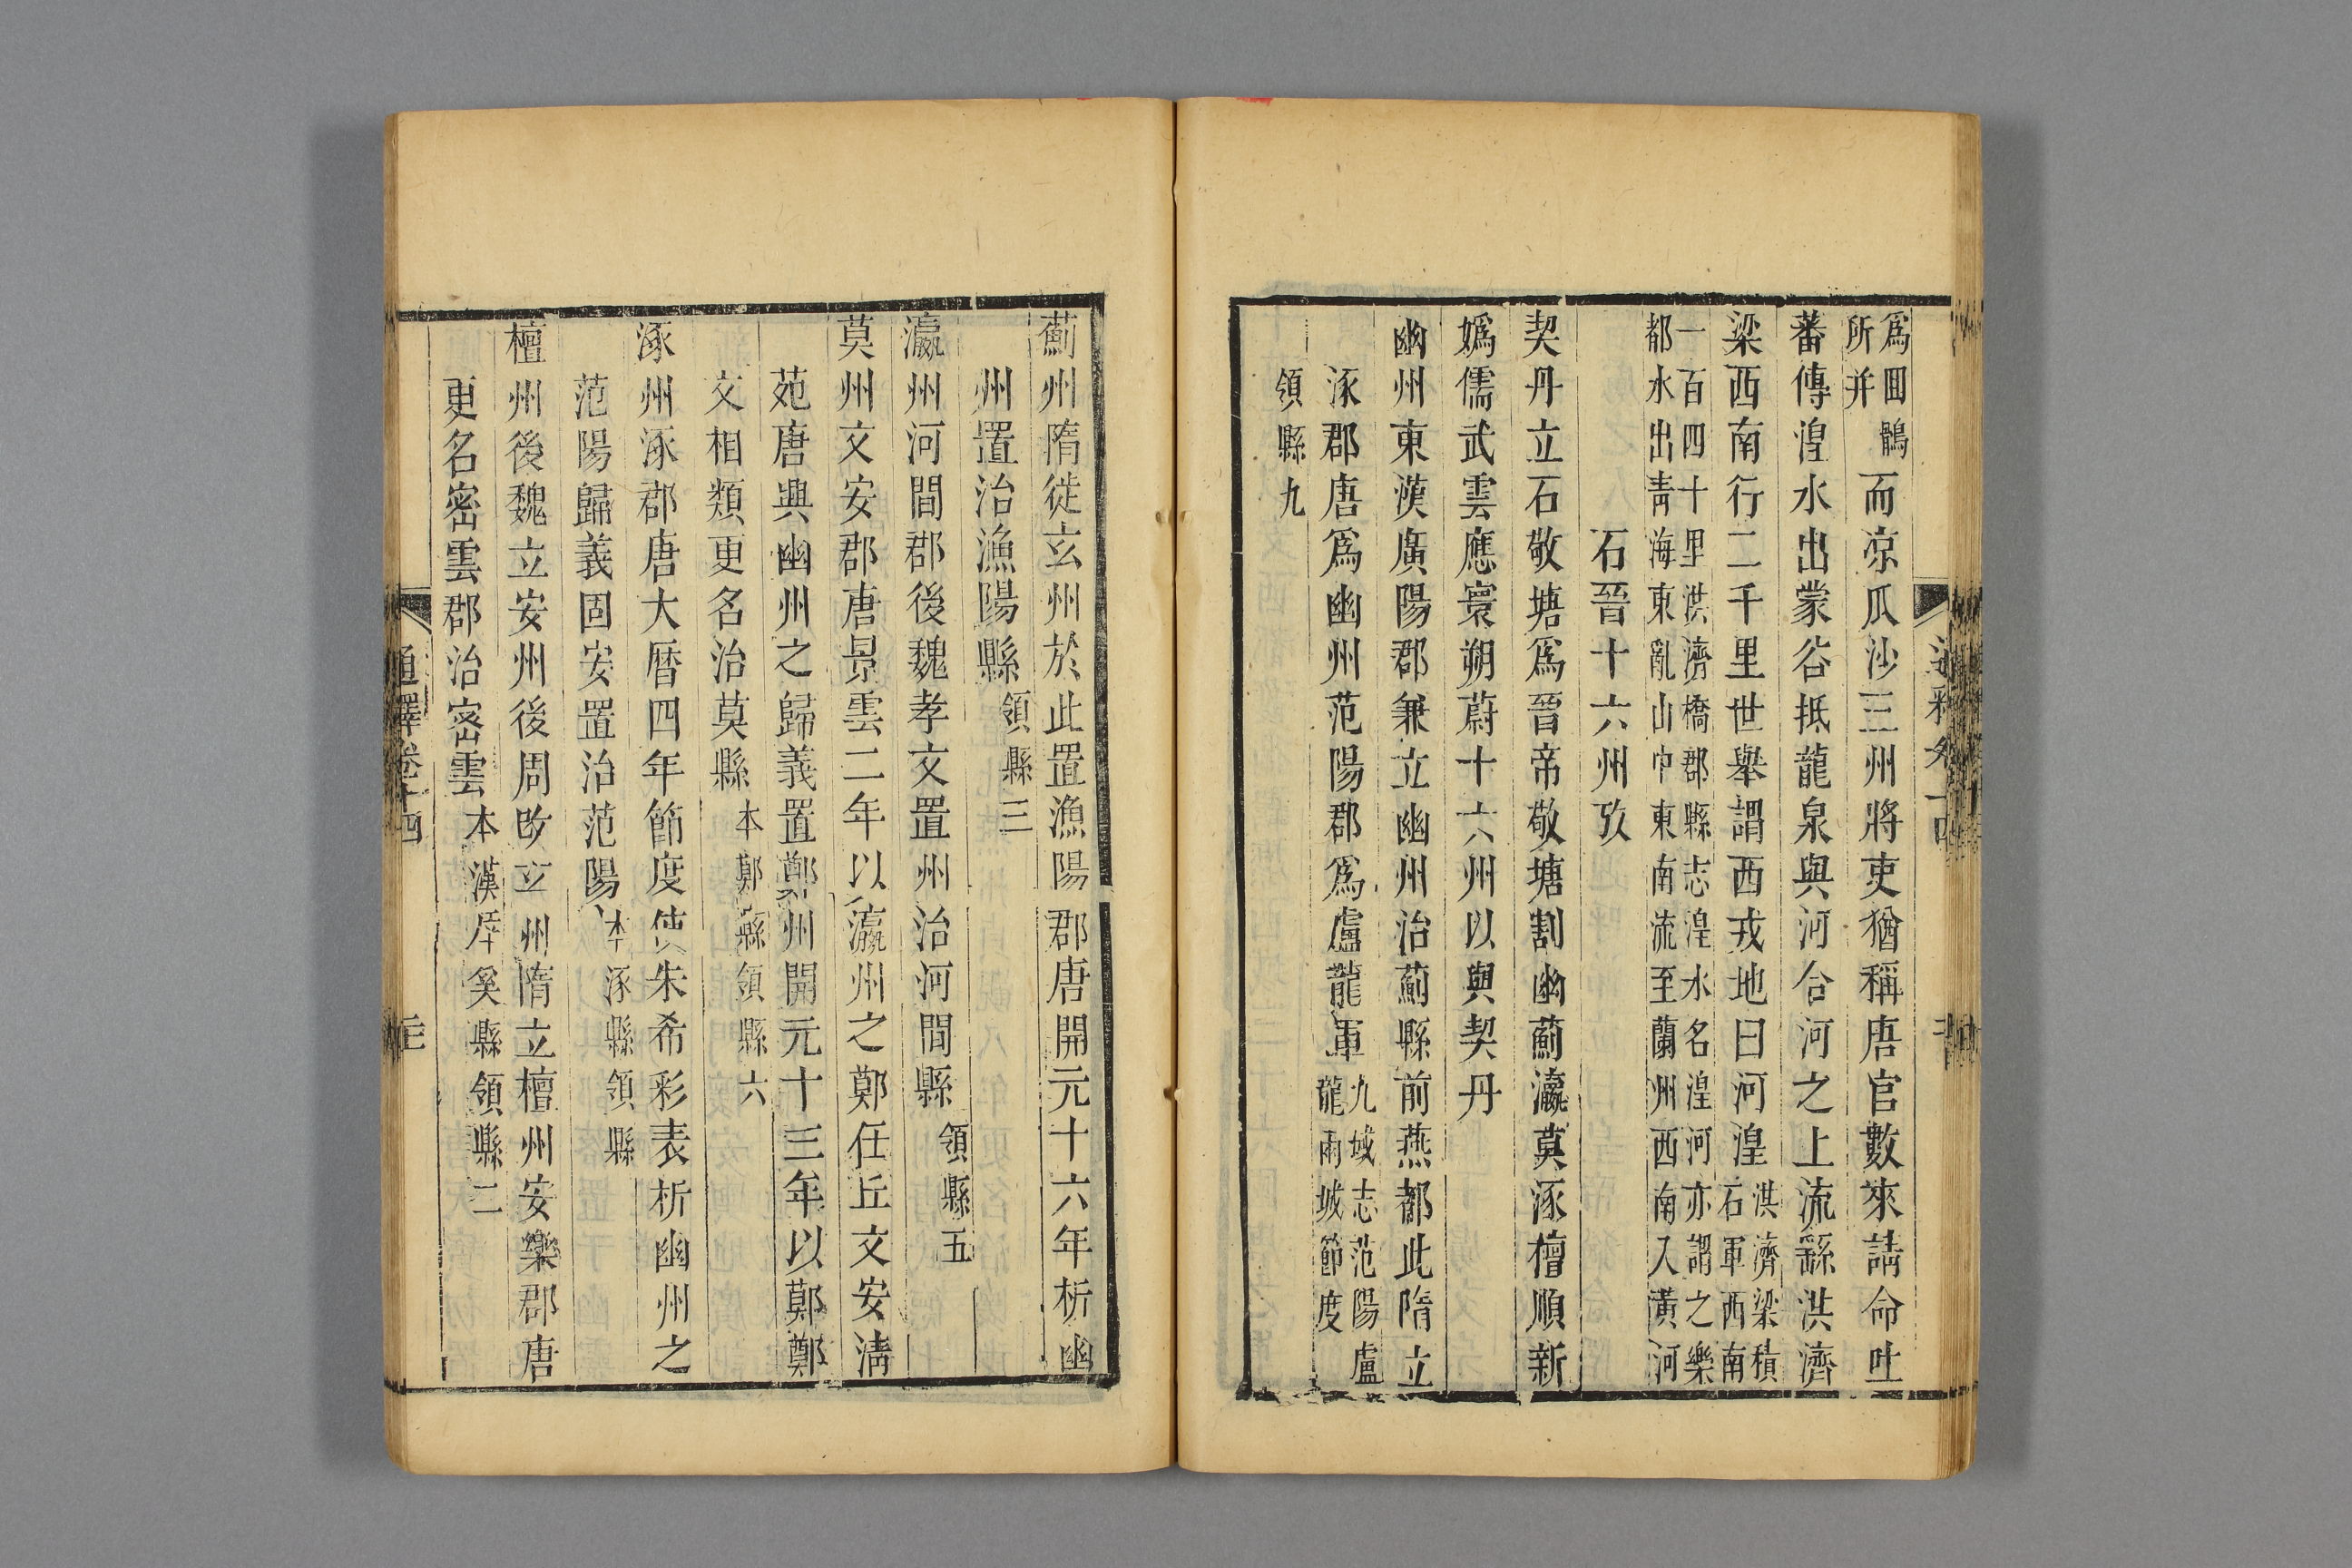 爲回鶻
所并
而涼瓜沙三州將吏猶稱唐官數來請命吐
蕃傳湟水出蒙谷抵龍泉與河合河之上流繇洪濟
梁西南行二千里世舉謂西戎地曰河湟
洪濟梁積
石軍西南
一百四十里洪濟橋郡縣志湟水名湟河亦謂之樂
都水出靑海東亂山中東南流至蘭州西南入黃河
石晉十六州攷
契丹立石敬塘爲晉帝敬塘割幽薊瀛莫涿檀順新
嬀儒武雲應寰朔蔚十六州以與契丹
幽州東漢廣陽郡兼立幽州治薊縣前燕都此隋立
涿郡唐爲幽州范陽郡爲盧龍軍
九域志范陽盧
龍兩城節度
領縣九
薊州隋徙玄州於此置漁陽郡唐開元十六年析幽
州置治漁陽縣
領縣三
瀛州河間郡後魏孝文置州治河間縣
領縣五
莫州文安郡唐景雲二年以瀛州之鄭任丘文安淸
苑唐興幽州之歸義置鄭州開元十三年以鄭鄭
文相類更名治莫縣
本鄭縣領縣六
涿州涿郡唐大曆四年節度使朱希彩表析幽州之
范陽歸義固安置治范陽
本涿縣領縣
檀州後魏立安州後周改玄州隋立檀州安樂郡唐
更名密雲郡治密雲
本漢厗奚縣領縣二
通釋卷十四